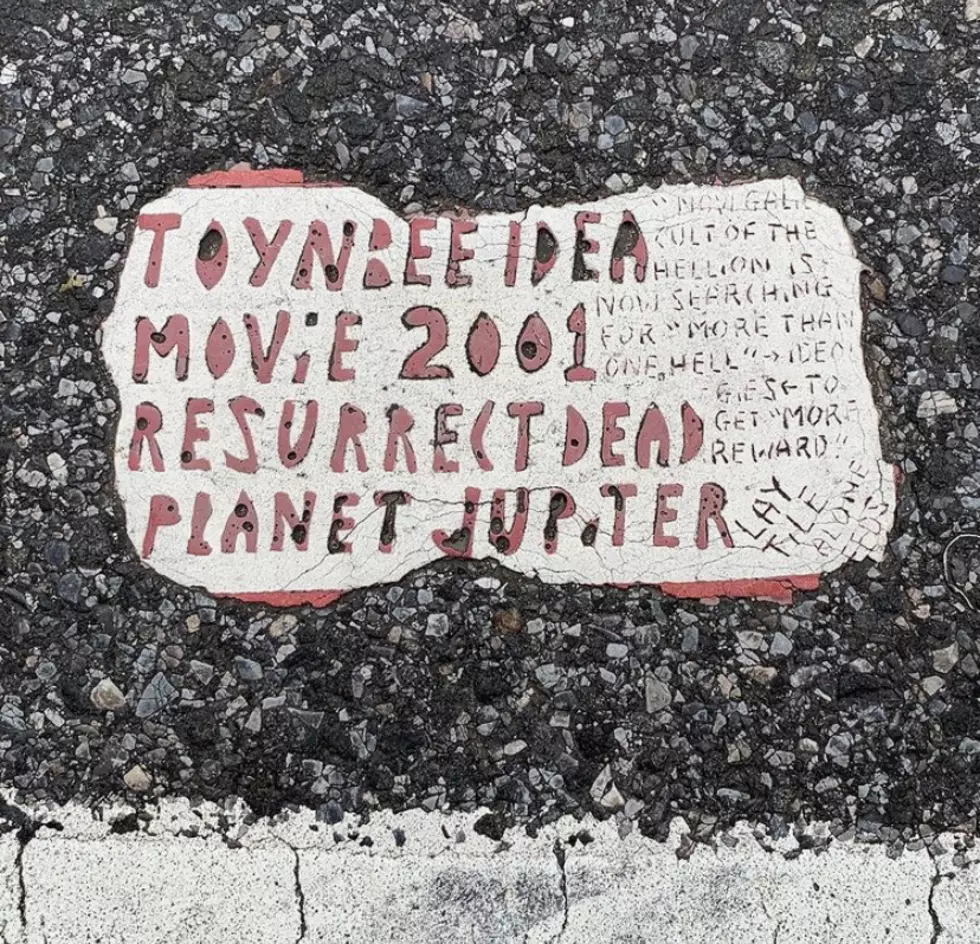 TOYNBEE IDEA
MOViE 2001
RESURRECT DEAD
PLANET JUPiTER
CULT OF THE
HELLiON IS
NOW SEARCHiNG
FOR "MORE THAN
ONE HELL"→ IDEOL
GIES← TO
GET "MORE
REWARD!"
LAY
TILE
ALONE